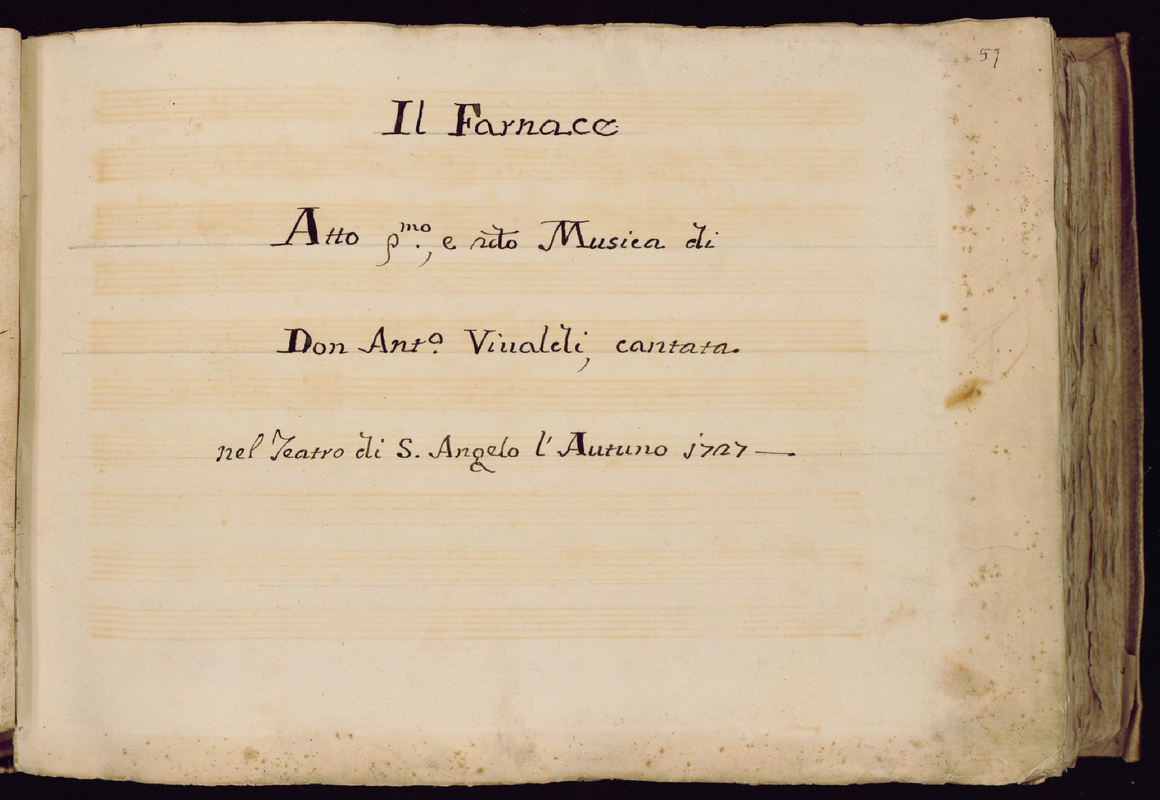 57
Il Farnace
Atto pmo., e 2do Musica di
Don Anto. Viualdi, cantata.
nel Teatro di S. Angelo l'Autuno 1727 —